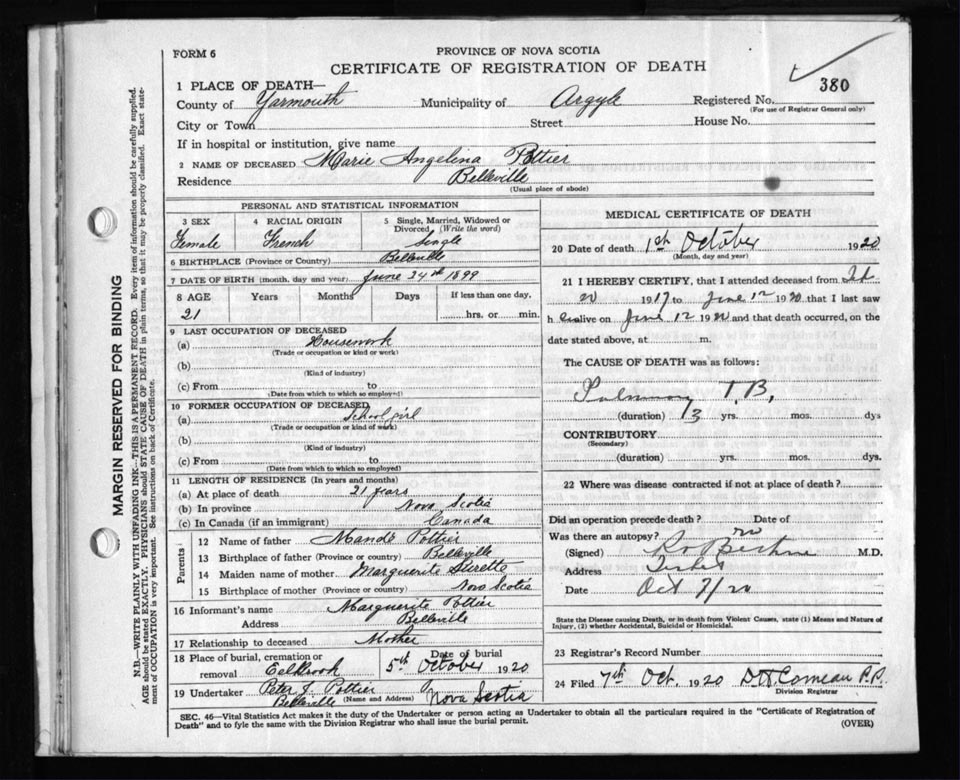 FORM 6
PROVINCE OF NOVA SCOTIA
CERTIFICATE OF REGISTRATION OF DEATH
380
1 PLACE OF DEATH—
County of Yarmouth Municipality of Argyle Registered No.
(For use of Registrar General only)
City or Town Street House No.
If in hospital or institution, give name
2 NAME OF DECEASED Marie Angelina Pottier
Residence Belleville
(Usual place of abode)
PERSONAL AND STATISTICAL INFORMATION
3 SEX 4 RACIAL ORIGIN 5 Single, Married, Widowed or Divorced (Write the word)
Female French Single
6 BIRTHPLACE (Province or Country) Belleville
7 DATE OF BIRTH (month, day and year) June 24th 1899
8 AGE Years Months Days If less than one day,
21 hrs. or min.
9 LAST OCCUPATION OF DECEASED
(a) Housework
(Trade or occupation or kind or work)
(b)
(Kind of industry)
(c) From to
(Date from which to which so employed)
10 FORMER OCCUPATION OF DECEASED
(a) School girl
(Trade or occupation or kind of work)
(b)
(Kind of industry)
(c) From to
(Date from which to which so employed)
11 LENGTH OF RESIDENCE (In years and months)
(a) At place of death 21 years
(b) In province Nova Scotia
(c) In Canada (if an immigrant) Canada
Parents
12 Name of father Mandé Pottier
13 Birthplace of father (Province or country) Belleville
14 Maiden name of mother Marguerite Surette
15 Birthplace of mother (Province or country) Nova Scotia
16 Informant's name Marguerite Pottier
Address Belleville
17 Relationship to deceased Mother
18 Place of burial, cremation or removal Eelbrook Date of burial 5th October 1920
19 Undertaker Peter J. Pottier
Belleville (Name and Address) Nova Scotia
MEDICAL CERTIFICATE OF DEATH
20 Date of death 1st October 1920
(Month, day and year)
21 I HEREBY CERTIFY, that I attended deceased from
20 1917 to June 12 1920 that I last saw
h alive on June 12 1920 and that death occurred, on the
date stated above, at m.
The CAUSE OF DEATH was as follows:
Pulmonary T.B.
(duration) 3 yrs. mos. dys
CONTRIBUTORY
(Secondary)
(duration) yrs. mos. dys.
22 Where was disease contracted if not at place of death?
Did an operation precede death? Date of
Was there an autopsy? no
(Signed) M.D.
Address
Date Oct 7/20
State the Disease causing Death, or in death from Violent Causes, state (1) Means and Nature of
Injury, (2) whether Accidental, Suicidal or Homicidal.
23 Registrar's Record Number
24 Filed 7th Oct. 1920 D H Comeau P.P.
Division Registrar
SEC. 46—Vital Statistics Act makes it the duty of the Undertaker or person acting as Undertaker to obtain all the particulars required in the "Certificate of Registration of
Death" and to fyle the same with the Division Registrar who shall issue the burial permit.
(OVER)
MARGIN RESERVED FOR BINDING
N.B.—WRITE PLAINLY WITH UNFADING INK—THIS IS A PERMANENT RECORD. Every item of information should be carefully supplied.
AGE should be stated EXACTLY. PHYSICIANS should STATE CAUSE OF DEATH in plain terms, so that it may be properly classified. Exact statement of OCCUPATION is very important. See instructions on back of Certificate.